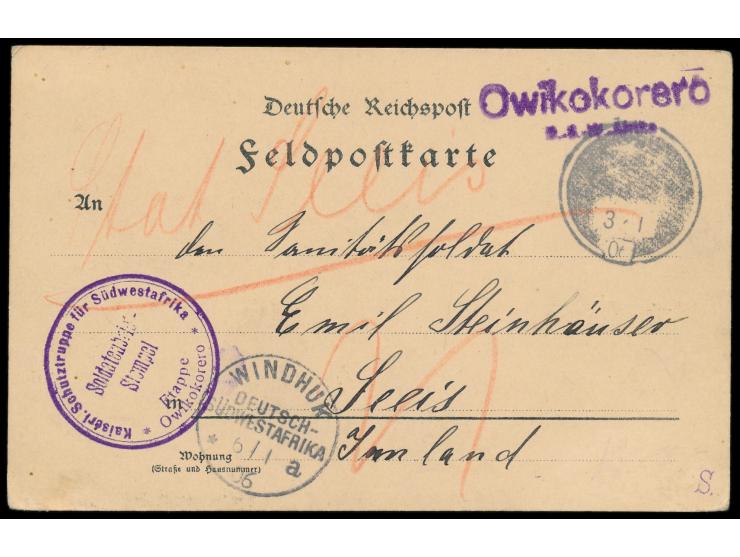 Owikokorero
D.S.W. Afrika
Deutsche Reichspost
Feldpostkarte
Stat Seeis
An
3/1
06
den Sanitätssoldat
Emil Steinhäuser
in Seeis
Innland
Kaiserl. Schutztruppe für Südwestafrika
Soldatenbrief-
Stempel
* Etappe *
Owikokorero
WINDHUK
DEUTSCH-
SÜDWESTAFRIKA
* 6/1 a
06
Wohnung
(Straße und Hausnummer)
S.